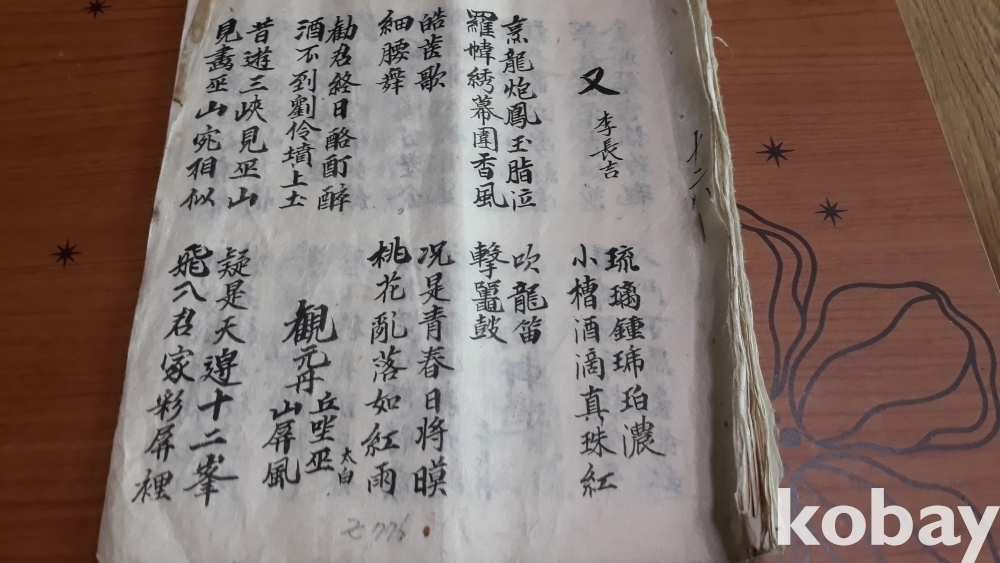 又
李長吉
琉璃鍾琥珀濃
小槽酒滴真珠紅
烹龍炮鳳玉脂泣
羅幃綉幕圍香風
吹龍笛
擊鼉鼓
皓齒歌
細腰舞
况是青春日將暯
桃花亂落如紅雨
勸君終日酩酊醉
酒不到劉伶墳上土
觀元丹
丘坐巫
山屏風
太白
昔遊三峽見巫山
見畵巫山宛相似
疑是天邊十二峯
飛入君家彩屏裡
kobay